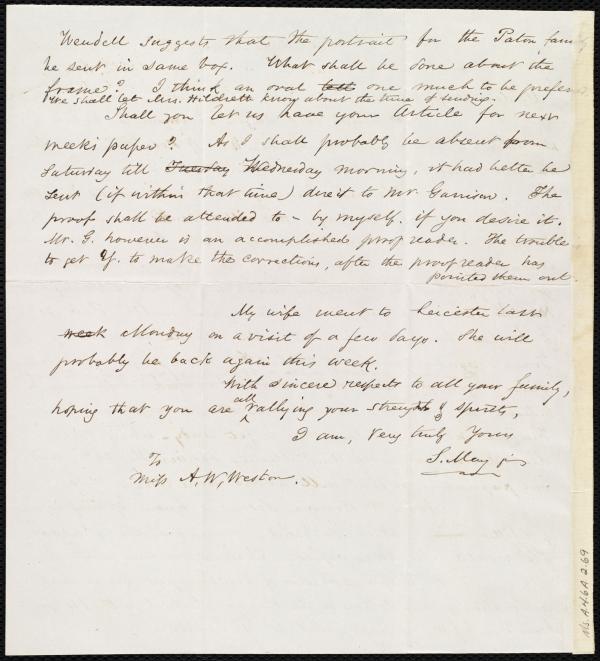 Wendell suggests that the portrait for the Paton family
be sent in same box. What shall be done about the
frame? I think an oval one much to be preferred
We shall let Mrs. Hildreth know about the time of sending.
Shall you let us have your Article for next
week's paper? As I shall probably be absent from
Saturday till Tuesday Wednesday morning, it had better be
sent (if within that time) direct to Mr Garrison. The
proof shall be attended to – by myself, if you desire it.
Mr. G. however is an accomplished proof reader. The trouble
to get Y. to make the corrections, after the proof reader has
pointed them out.
My wife went to Leicester last
week Monday on a visit of a few days. She will
probably be back again this week.
With sincere respects to all your family,
hoping that you are all rallying your strength & spirits,
I am, very truly Yours
S. May jr
To
Miss A. W. Weston.
Ms. A.9.2